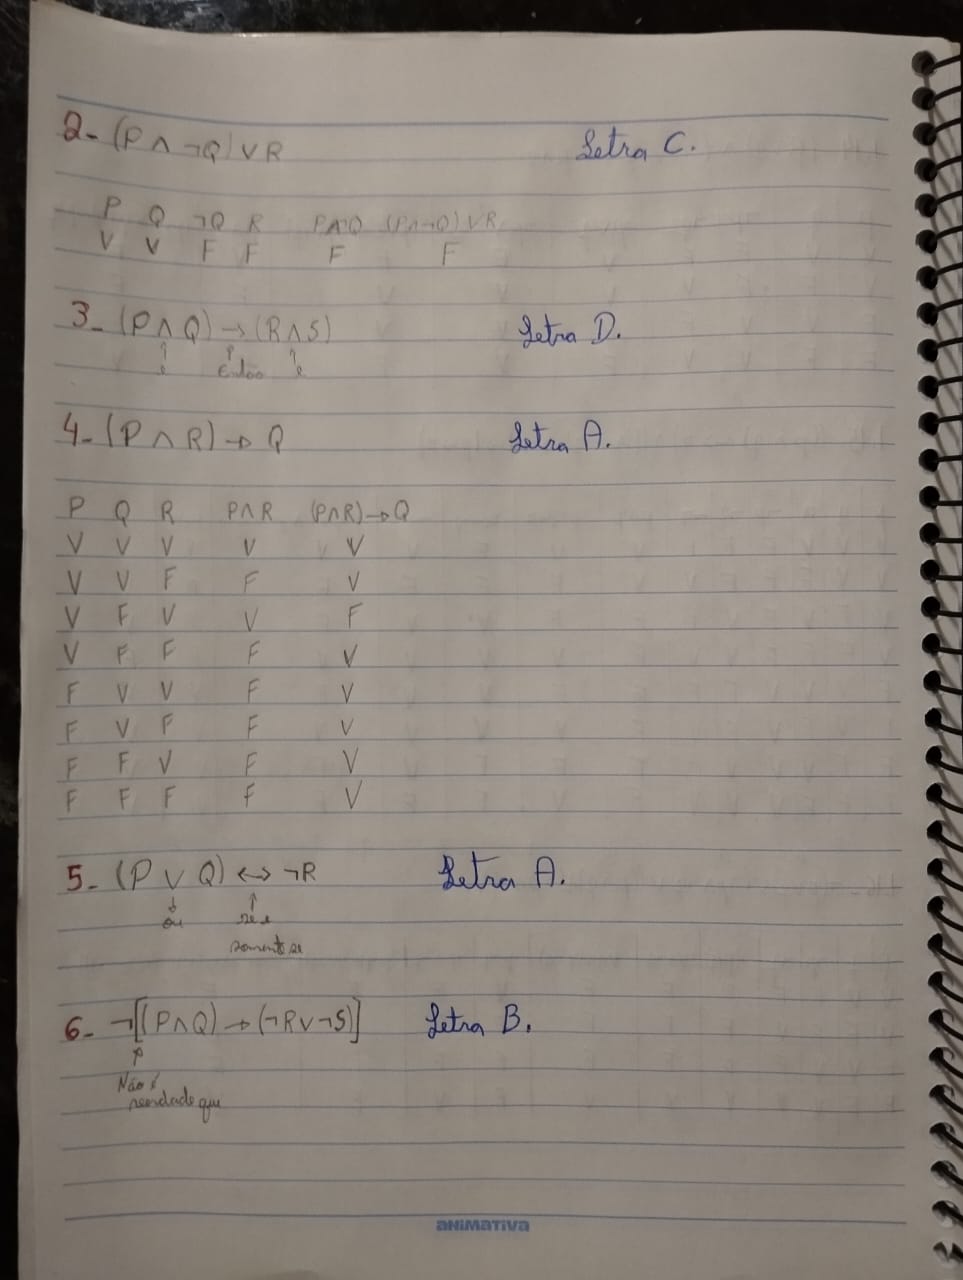 2- (P ∧ ¬Q) ∨ R Letra C.
P Q ¬Q R P∧¬Q (P∧¬Q) ∨ R
V V F F F F
3- (P ∧ Q) → (R ∧ S) Letra D.
e então e
4- (P ∧ R) → Q Letra A.
P Q R P∧R (P∧R)→Q
V V V V V
V V F F V
V F V V F
V F F F V
F V V F V
F V F F V
F F V F V
F F F F V
5- (P ∨ Q) ↔ ¬R Letra A.
ou se e
somente se
6- ¬[(P∧Q) → (¬R∨¬S)] Letra B.
Não é
verdade que
ANIMATIVA